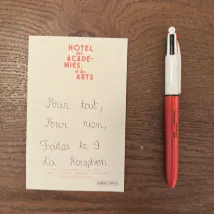 HOTEL
des
ACADE-
MIES
et des
ARTS
Pour tout,
Pour rien,
Faites le 9
La Réception